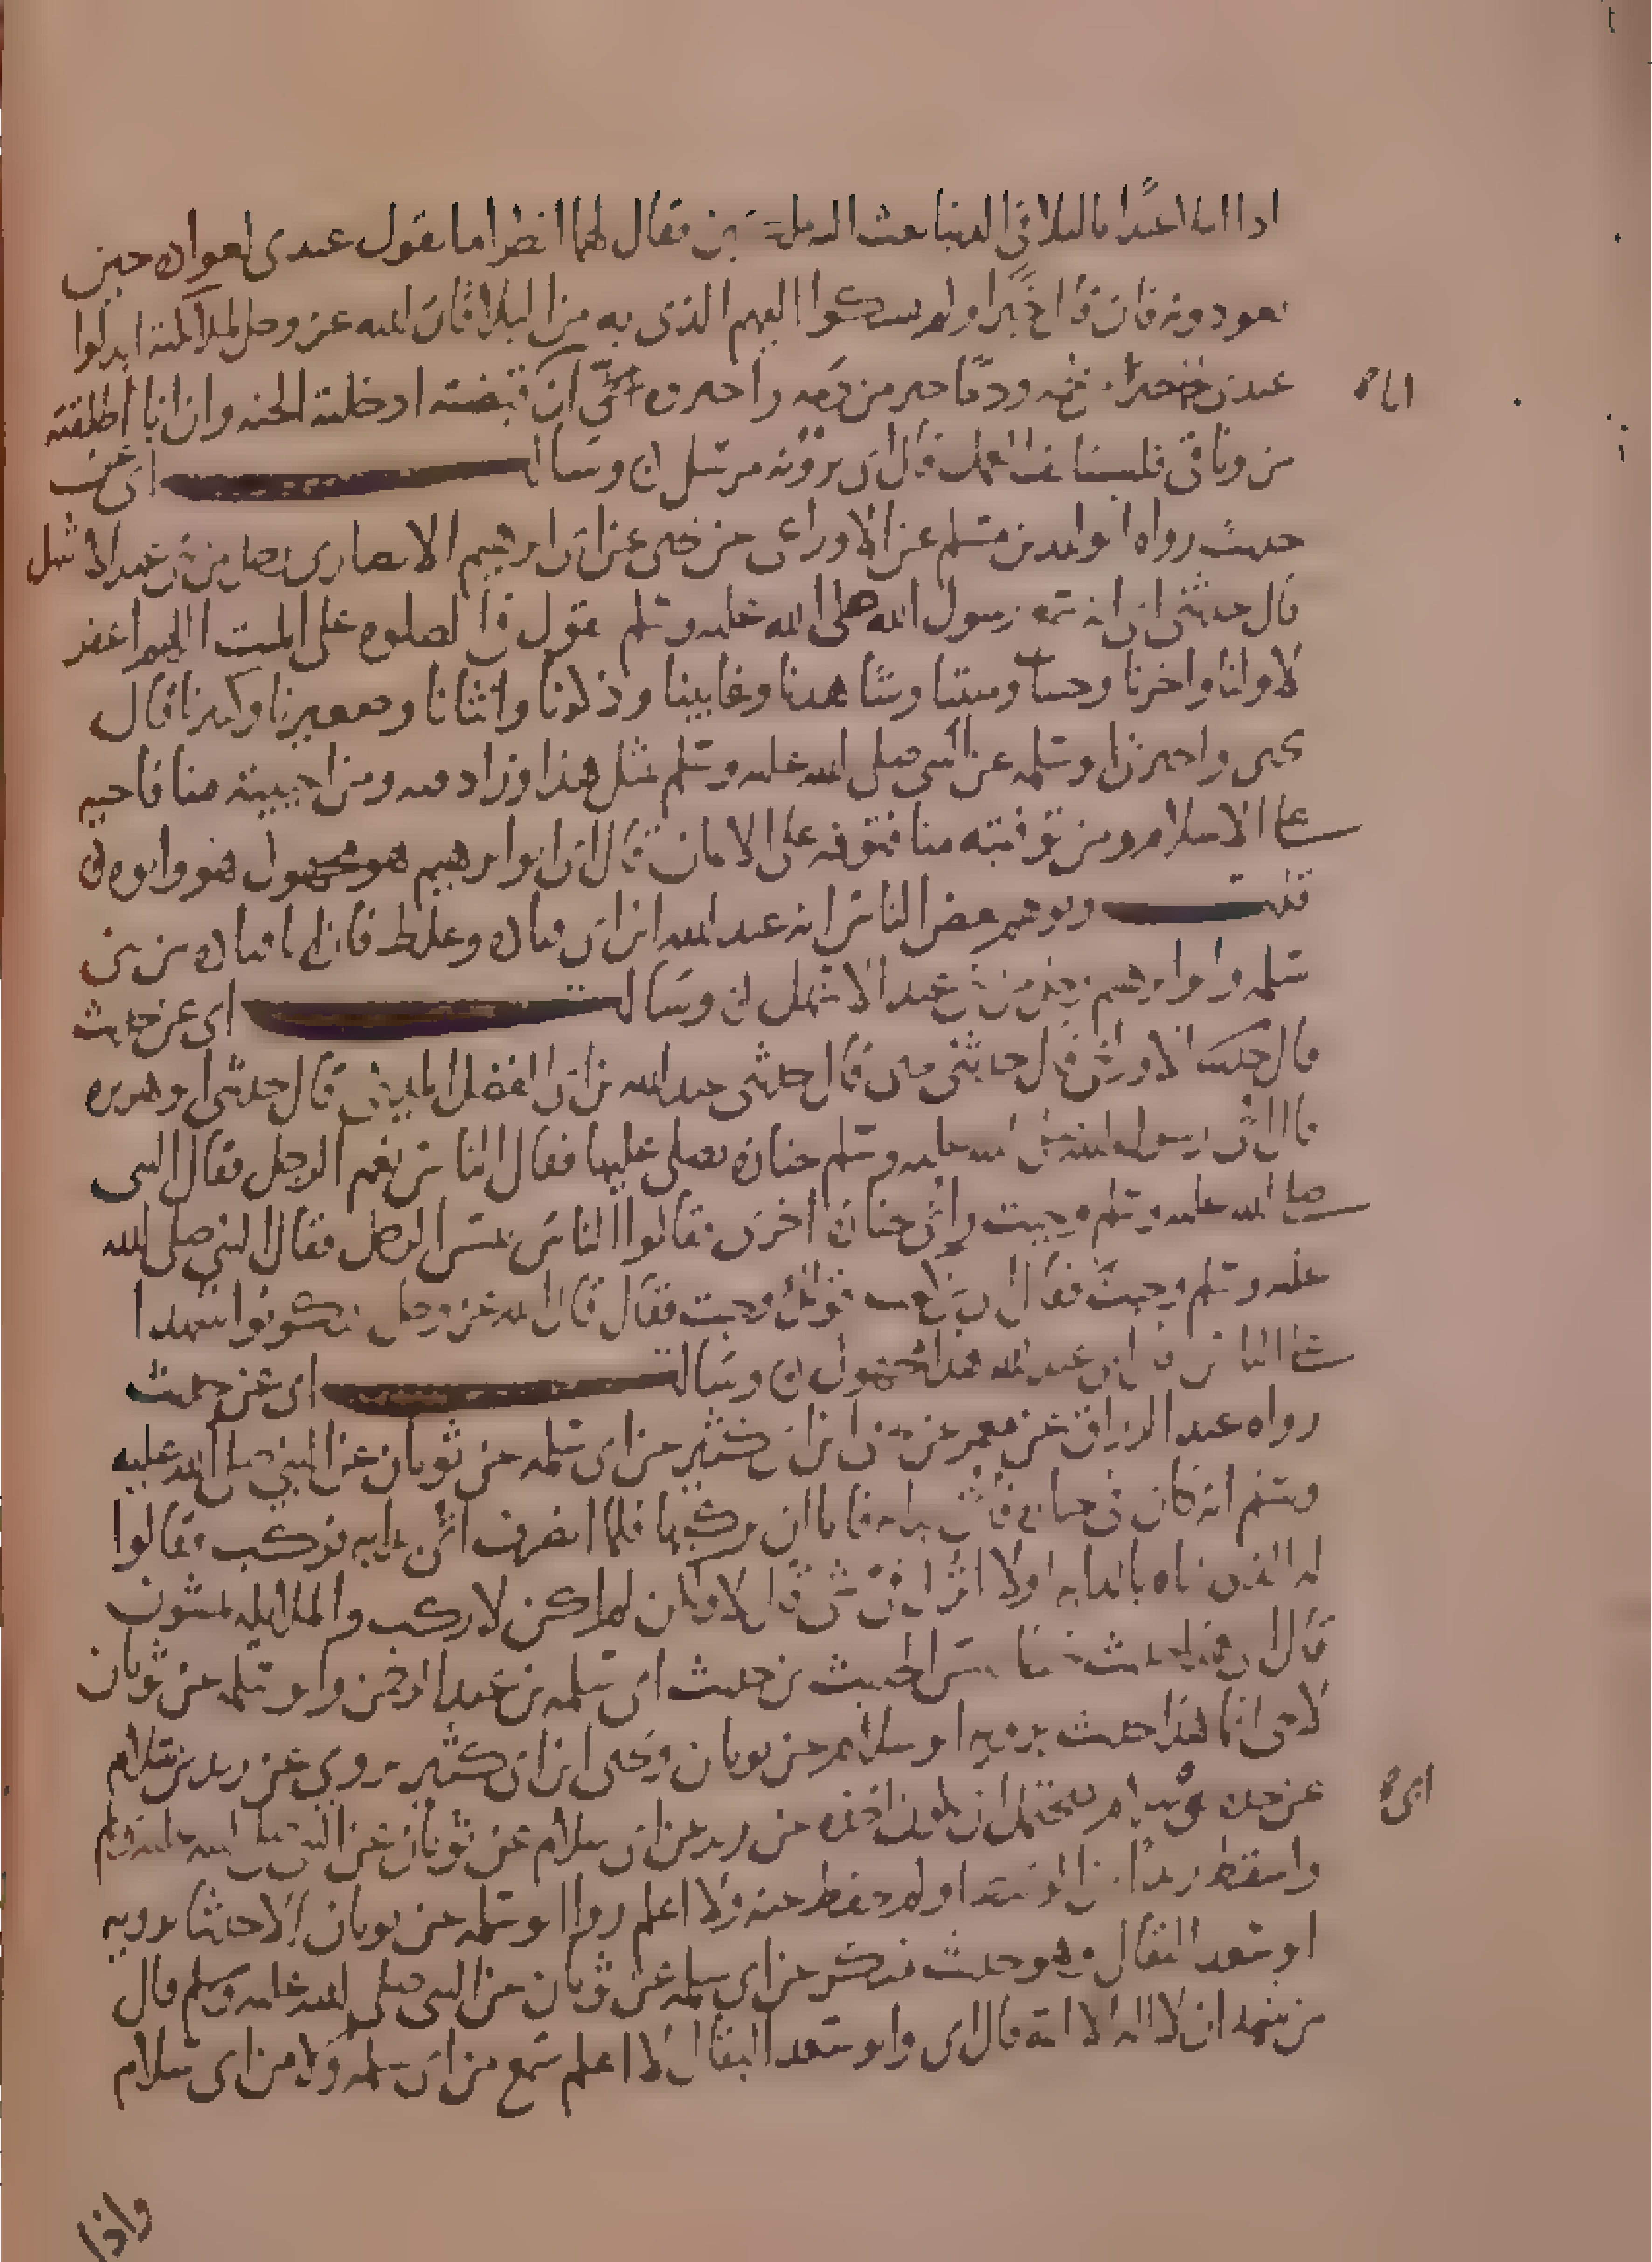 اذا ابتلا عبدا بالبلا في الدنيا بعث اليه ملكين فقال لهما انظرا ما يقول عبدي لعواده حين
يعودونه فان قال خيرا ولم يشكوا اليهم الذي به من البلا قال الله عز وجل لملائكته ابدلوا
عبدي لحما خير من لحمه ودما خير من دمه واخبروه اني ان قبضته ادخلته الجنه وان انا اطلقته
من وثاقي فليستانف العمل قال ابي يروونه مرسل وسالت ابي عن
حديث رواه الوليد بن مسلم عن الاوزاعي عن يحيى عن ابي ابرهيم الانصاري رجل من بني عبد الاشهل
قال حدثني ابي انه سمع رسول الله صلى الله عليه وسلم يقول في الصلوه على الميت اللهم اغفر
لاولنا واخرنا وحينا وميتنا وشاهدنا وغايبنا وذكرنا وانثانا وصغيرنا وكبيرنا قال
يحيى واخبرني ابو سلمه عن النبي صلى الله عليه وسلم بمثل هذا وزاد فيه ومن احييته منا فاحيه
على الاسلام ومن توفيته منا فتوفه على الايمان قال ابي ابو ابرهيم هو مجهول هو وابوه
قلت وتوهم بعض الناس انه عبد الله ابن ابي قتاده وغلط فان ابا قتاده من بني
سلمه وابو ابرهيم رجل من بني عبد الاشهل وسالت ابي عن حديث
قال حدثنا الاوزاعي قال حدثني يحيى قال حدثني عبد الله بن ابي الفضل المديني قال حدثني ابو هريره
قال اتي رسول الله صلى الله عليه وسلم جنازه يصلي عليها فقال الناس نعم الرجل فقال النبي
صلى الله عليه وسلم وجبت واتي جنازه اخرى فقالوا الناس بئس الرجل فقال النبي صلى الله
عليه وسلم وجبت فقال ابي بن كعب قولك وجبت فقال قال الله عز وجل لتكونوا شهدا
على الناس قال ابي عبد الله هذا مجهول وسالت ابي عن حديث
رواه عبد الرزاق عن معمر عن يحيى ابن ابي كثير عن ابي سلمه عن ثوبان عن النبي صلى الله عليه
وسلم انه كان في جنازه فاتي بدابه فابا ان يركبها فلما انصرف اتي بدابه فركب فقالوا
له اتيناه بالدابه اولا قال لا ولكن لم اكن لاركب والملايكه يمشون
قال ابي هذا حديث خطا ليس الحديث من حديث ابي سلمه بن عبد الرحمن وابو سلمه عن ثوبان
لا يجي انما هذا حديث يرويه ابو سلام عن ثوبان ويحيى ابن ابي كثير يروي عن زيد بن سلام
عن جده ابي سلام يحتمل ان يكون اخذه عن زيد عن ابي سلام عن ثوبان عن النبي صلى الله عليه وسلم
واسقط زيدا من الوسط او لم يحفظ عنه ولا اعلم روا ابو سلمه عن ثوبان الا حديثا يرويه
ابو سعد البقال وهو حديث منكر عن ابي سلمه عن ثوبان عن النبي صلى الله عليه وسلم قال
من شهد ان لا اله الا الله قال ابي وابو سعد البقال لا اعلم سمع من ابي سلمه ولا من ابي سلام
واذا